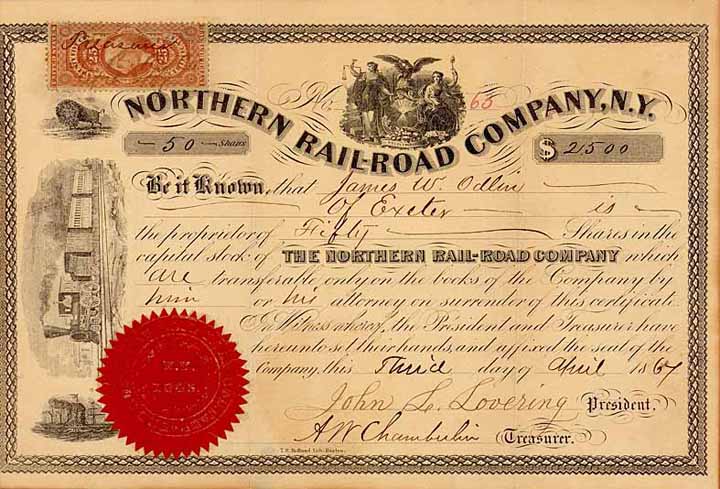 Treasurer
25 25
No. 65
NORTHERN RAIL-ROAD COMPANY, N.Y.
50 Shares
$ 2500
Be it Known, that James W. Odlin
Of Exeter is
the proprietor of Fifty Shares in the
capital stock of THE NORTHERN RAIL-ROAD COMPANY which
are transferable only on the books of the Company by
him or his attorney on surrender of this certificate.
In Witness whereof, the President and Treasurer have
hereunto set their hands, and affixed the seal of the
Company, this Third day of April 1867
John L. Lovering President.
A W Chamberlin Treasurer.